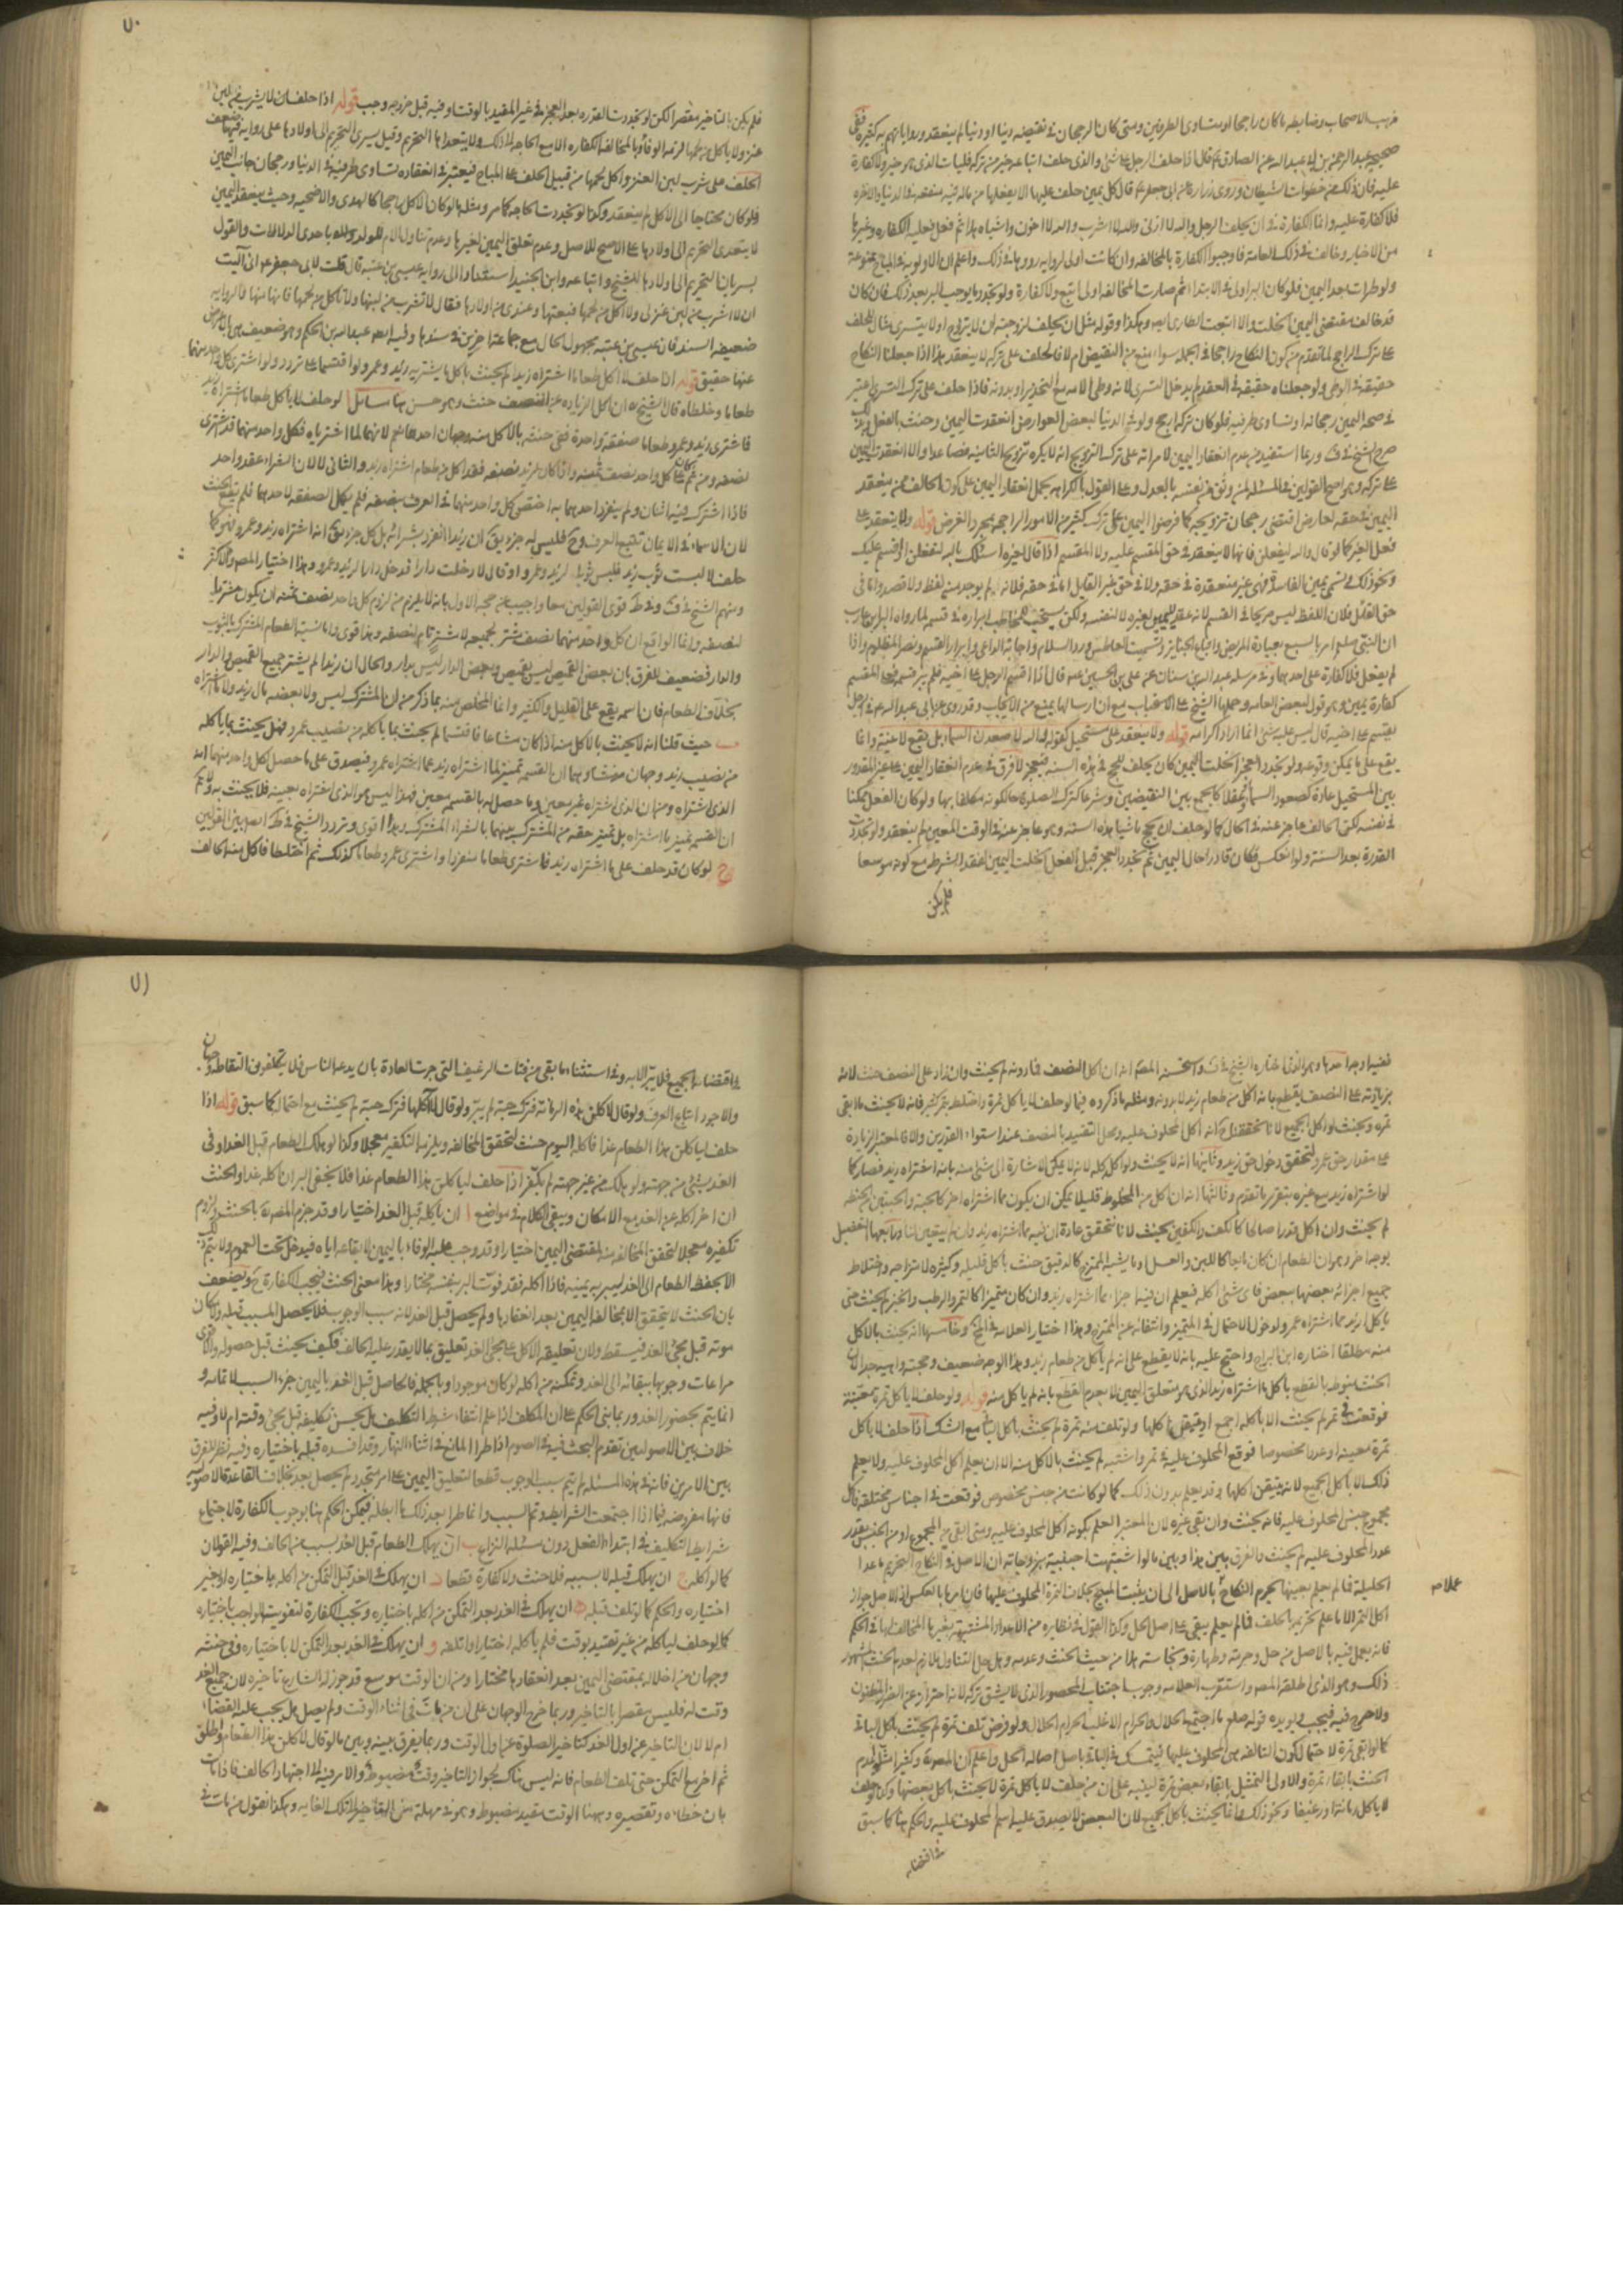 مذهب الاصحاب وضابطه ما كان راجحا او متساوى الطرفين ومتى كان الرجحان فى نقيضه دينا او دنيا لم ينعقد ورواياتهم به كثيرة ففى
صحيحة عبد الرحمن بن ابى عبد الله عن الصادق ع قال اذا حلف الرجل على شئ والذى حلف عليه اتيانه خير من تركه فليات الذى هو خير ولا كفارة
عليه فان ذلك من خطوات الشيطان وروى زرارة عن ابى جعفر ع قال كل يمين حلف عليها الا يفعلها مما له فيه منفعة فى الدنيا والاخرة
فلا كفارة عليه وانما الكفارة فى ان يحلف الرجل والله لا ازنى والله لا اشرب والله لا اخون واشباه هذا ثم فعل فعليه الكفارة وغيرها
من الاخبار وخالف فى ذلك العامة فاوجبوا الكفارة بالمخالفة وان كانت اولى لرواية رووها فى ذلك واعلم ان الاولوية فى المباح ممنوعة
ولو طرات بعد اليمين فلو كان البر اولى فى الابتداء ثم صارت المخالفة اولى اتبع ولا كفارة ولو تجدد ما يوجب البر بعد ذلك فان كان
قد خالف مقتضى اليمين انحلت والا اتبعت الطارى ابدا وهكذا وقوله مثل ان يحلف لزوجته ان لا يتزوج او لا يتسرى مثال للحلف
على ترك الراجح لما تقدم من كون النكاح راجحا فى الجملة سواء منع من النقيض ام لا فالحلف على تركه لا ينعقد هذا اذا جعلنا النكاح
حقيقة فى الوطى ولو جعلناه حقيقة فى العقد لم يدخل التسرى لانه وطى الامة مع التخدير او بدونه فاذا حلف على ترك التسرى اعتبر
فى صحة اليمين رجحانه او تساوى طرفيه فلو كان تركه ارجح ولو فى الدنيا لبعض العوارض انعقدت اليمين وحنث بالفعل وبه
صرح الشيخ فى ف وربما استفيد من عدم انعقاد اليمين لامراته على ترك التزويج انه لا يكره تزويج الثانية فصاعدا والا انعقدت اليمين
على تركه وهو اصح القولين فى المسئلة لمن وثق من نفسه بالعدل وعلى القول بالكراهة يحمل انعقاد اليمين على كون الحالف ممن ينعقد
اليمين فى حقه لعارض اقتضى رجحان تزويجه كما فرضوا اليمين على ترك كثير من الامور الراجحة بمجرد الغرض قوله ولا ينعقد على
فعل الغير كما لو قال والله ليفعلن فانها لا ينعقد فى حق المقسم عليه ولا المقسم اذا قال لغيره اسئلك بالله لتفعلن او اقسم عليك
ونحو ذلك فى تسمى يمين المناشدة فهى غير منعقدة فى حقه ولا فى حق غير القايل اما فى حقه فلانه لم يوجد منه لفظ ولا قصد واما فى
حق القائل فلان اللفظ ليس صريحا فى القسم لانه عقد اليمين لغيره لا لنفسه ولكن يستحب للمخاطب ابراره فى قسمه لما رواه البراء بن عازب
ان النبى صلعم امر بالسبع بعيادة المريض واتباع الجنائز وتسميت العاطس ورد السلام واجابة الداعى وابرار القسم ونصر المظلوم واذا
لم يفعل فلا كفارة على احدهما وفى مرسلة عبد الله بن سنان عن على بن الحسين ع قال اذا اقسم الرجل على اخيه فلم يبر قسمه فعلى المقسم
كفارة يمين وهو قول لبعض العامة وحملها الشيخ على الاستحباب مع ان ارسالها يمنع من الايجاب وقد روى عن ابى عبد الله ع فى الرجل
يقسم على اخيه قال ليس عليه شئ انما اراد اكرامه قوله ولا ينعقد على مستحيل كقوله والله لاصعدن السماء بل يقع لاغية وانما
يقع على ما يمكن وقوعه ولو تجدد العجز انحلت اليمين كان يحلف ليحج فى هذه السنة فيعجز لا فرق فى عدم انعقاد اليمين على غير المقدور
بين المستحيل عادة كصعود السماء وعقلا كالجمع بين النقيضين وشرعا كترك الصلوة حالكونه مكلفا بها ولو كان الفعل ممكنا
فى نفسه لكن الحالف عاجز عنه فى الحال كما لو حلف ان يحج ماشيا هذه السنة وهو عاجز عنه فى الوقت المعين لم ينعقد ولو تجددت
القدرة بعد السنة ولو انعكس فكان قادرا حال اليمين ثم تجدد العجز قبل الفعل انحلت اليمين لفقد الشرط مع كونه موسعا
فلم يكن
٧٠
فلم يكن بالتاخير مقصرا لكن لو تجددت القدرة بعد العجز فى غير المقيد بالوقت او فيه قبل خروجه وجب قوله اذا حلف ان لا يشرب من لبن
عنز ولا ياكل من لحمها لزمه الوفاء وبالمخالفة الكفارة الا مع الحاجة الى ذلك ولا يتعداها التحريم وقيل يسرى التحريم الى اولادها على رواية فيها ضعف
الحلف على شرب لبن العنز واكل لحمها من قبيل الحلف على المباح فيعتبر فى انعقاده تساوى طرفيه فى الدنيا ورجحان جانب اليمين
فلو كان محتاجا الى الاكل لم ينعقد وكذا لو تجددت الحاجة كما مر ومثله ما لو كان الاكل راجحا كالهدى والاضحية وحيث ينعقد اليمين
لا يتعدى التحريم الى اولادها على الاصح للاصل وعدم تعلق اليمين بغيرها وعدم تناول الام للولد وله باحدى الدلالات والقول
بسريان التحريم الى اولادها للشيخ واتباعه وابن الجنيد استنادا الى رواية عيسى بن عتبة قال قلت لابى جعفر ع انى آليت
ان لا اشرب من لبن عنزلى ولا اكل من لحمها فبعتها وعندى من اولادها فقال لا تشرب من لبنها ولا تاكل من لحمها فانها منها والرواية
ضعيفة السند فان عيسى بن عتبة مجهول الحال مع جماعة اخرين فى سندها وفيه ايضا عبد الله بن الحكم وهو ضعيف
عنها حقيق قوله اذا حلف لا اكل طعاما اشتراه زيد لم يحنث باكل ما يشتريه زيد وعمرو ولو اقتسماه على تردد ولو اشترى كل واحد منهما
طعاما وخلطاه قال الشيخ ره ان اكل الزيادة عن النصف حنث وهو حسن هنا مسائل ا لو حلف لا ياكل طعاما اشتراه زيد
فاشترى زيد وعمرو طعاما صفقة واحدة ففى حنثه بالاكل منه وجهان احدهما نعم لانهما لما اشترياه فكل واحد منهما قد اشترى
نصفه ومن ثم كان على كل واحد نصف ثمنه واذا كان لزيد نصفه فقد اكل من طعام اشتراه زيد والثانى لا لان الشراء عقد واحد
فاذا اشترك فيه اثنان ولم ينفرد احدهما به اختص كل واحد منهما فى العرف بنصفه فلم يكمل الصفقة لاحدهما فلم يقع الحنث
لان الاسماء فى الايمان تتبع العرف وح فليس له جزء يق ان زيدا انفرد بشرائه بل كل جزء يق انه اشتراه زيد وعمرو فهو كما
حلف لا لبست ثوب زيد فلبس ثوبا لزيد وعمرو او قال لا دخلت دارا فدخل دارا لزيد وعمرو وهذا اختيار المصره والاكثر
ومنهم الشيخ فى ف وفى ط قوى القولين معا واجيب عن حجة الاول بانه لا يلزم من لزوم كل واحد نصف ثمنه ان يكون مشتريا
لنصفه وانما الواقع ان كل واحد منهما نصف مشتر لجميعه لا مشتر تام لنصفه وهذا قوى واما نسبة الطعام المشترك بالثوب
والدار فضعيف للفرق بان بعض القميص ليس بقميص وبعض الدار ليس بدار والحال ان زيدا لم يشتر جميع القميص والدار
بخلاف الطعام فان اسمه يقع على القليل والكثير وانما المخلص منه بما ذكر من ان المشترك ليس ولا بعضه مال زيد ولا مما اشتراه
ب حيث قلنا انه لا يحنث بالاكل منه اذا كان مشاعا فاقتسما لم يحنث بما ياكله من نصيب عمرو وهل يحنث بما ياكله
من نصيب زيد وجهان منشاؤهما ان القسمة تمييز لما اشتراه زيد عما اشتراه عمرو فيصدق على ما حصل لكل واحد منهما انه
الذى اشتراه ومن ان الذى اشتراه غير معين وما حصل له بالقسمة معين فهذا ليس هو الذى اشتراه بعينه فلا يحنث به ولا نم
ان القسمة تمييز ما اشتراه بل تمييز حقه من المشترك بينهما بالشراء المشترك وهذا اقوى وتردد الشيخ فى ط ايضا بين القولين
ج لو كان قد حلف على ما اشتراه زيد فاشترى طعاما منفردا واشترى عمرو طعاما كذلك ثم اختلطا فاكل منه الحالف
ففيه اوجه احدها وهو الذى اختاره الشيخ فى ف واستحسنه المصره انه ان اكل النصف فما دونه لم يحنث وان زاد على النصف حنث لانه
بزيادته على النصف يقطع بانه اكل من طعام زيد لا بدونه ومثله ما ذكروه فيما لو حلف لا ياكل تمرة واختلطت بتمر كثير فانه لا يحنث ما بقى
تمرة ويحنث لو اكل الجميع لانا نتحقق ح انه اكل المحلوف عليه ومحل التقييد بالنصف عند استواء القدرين والا فالمعتبر الزيادة
على مقدار حق عمرو لتحقق دخول حق زيد وثانيها انه لا يحنث ولو اكل كله لانه لا يمكن الاشارة الى شئ منه بانه اشتراه زيد فصار كما
لو اشتراه زيد مع غيره بتقرير ما تقدم وثالثها انه ان اكل من المخلوط قليلا يمكن ان يكون مما اشتراه الاخر كالحبة والحبتين من الحنطة
لم يحنث وان اكل قدرا صالحا كالكف والكفين يحنث لانا نتحقق عادة ان فيه مما اشتراه زيد وان لم يتعين لنا ورابعها التفصيل
بوجه اخر وهو ان الطعام ان كان مايعا كاللبن والعسل او ما يشبه الممتزج كالدقيق حنث باكل قليله وكثيره لامتزاجه واختلاط
جميع اجزائه بعضها ببعض فاى شئ اكل فيعلم ان فيه اجزاء مما اشتراه زيد وان كان متميزا كالتمر والرطب والخبز لم يحنث حتى
ياكل ازيد مما اشتراه عمرو لدخول الاحتمال فى المتميز وانتفائه عن الممتزج وهذا اختيار العلامة فى لف وخامسها انه يحنث بالاكل
منه مطلقا اختاره ابن البراج واحتج عليه بانه لا يقطع على انه لم ياكل من طعام زيد وهذا الوجه ضعيف وحجته واهية جدا لان
الحنث منوط بالقطع باكل ما اشتراه زيد الذى هو متعلق اليمين لا بعدم القطع بانه لم ياكل منه قوله ولو حلف لا ياكل تمرة معينة
فوقعت فى تمر لم يحنث الا باكله اجمع او بتيقن اكلها ولو تلف منه تمرة لم يحنث باكل الباقى مع الشك اذا حلف لا ياكل
تمرة معينة او عددا مخصوصا فوقع المحلوف عليه فى تمر واشتبه لم يحنث بالاكل منه الا ان يعلم اكل المحلوف عليه ولا يعلم
ذلك الا باكل الجميع لانه يتيقن اكلها وقد يعلم بدون ذلك كما لو كانت من جنس مخصوص فوقعت فى اجناس مختلفة فاكل
مجموع جنس المحلوف عليه فانه يحنث وان بقى غيره لان المعتبر العلم بكونه اكل المحلوف عليه ومتى ابقى من المجموع او من الجنس بقدر
عدد المحلوف عليه لم يحنث والفرق بين هذا وبين ما لو اشتبهت اجنبية بزوجاته ان الاصل فى النكاح التحريم ما عدا
الحليلة فما لم يعلم بعينها يحرم النكاح بالاصل الى ان يثبت المبيح بخلاف التمرة المحلوف عليها فان امرها بالعكس اذ الاصل جواز
اكل التمر الا ما علم تحريمه بالحلف فما لم يعلم يبقى على اصل الحل وكذا القول فى نظايره من الاعداد المشتبهة بغيرها المخالف لها فى الحكم
فانه يعمل فيه بالاصل من حل وحرمة وطهارة ونجاسة هذا من حيث الحنث وعدمه وهل حل التناول ملازم لعدم الحنث المشهور
ذلك وهو الذى اطلقه المصه واستقرب العلامة وجوب اجتناب المحصور الذى لا يشق تركه لانه احتراز عن الضرر المظنون
ولا حرج فيه فيجب ويويده قوله صلع ما اجتمع الحلال والحرام الا غلب الحرام الحلال ولو فرض تلف تمرة لم يحنث باكل الباقى
كما لو ابقى تمرة لاحتمال كون التالفة هى المحلوف عليها فيتمسك فى الباقى باصل اصالة الحل واعلم ان المصره وكثيرا مثلوا لعدم
الحنث بابقاء تمرة والاولى التمثيل بابقاء بعض تمرة لينبه على ان من حلف لا ياكل تمرة لا يحنث باكل بعضها وكذا لو حلف
لا ياكل رمانة او رغيفا ونحو ذلك فانما يحنث باكل الجميع لان البعض لا يصدق عليه اسم المحلوف عليه والحكم هنا كما سبق
فى اقتضائه
٧١
فى اقتضائه الجميع فلا يبر الا به وفى استثناء ما يبقى من فتات الرغيف التى جرت العادة بان يدعه الناس فلا يتكلفون التقاطه وجهان
والاجود اتباع العرف ولو قال لاكلن هذه الرمانة فترك حبة لم يبر ولو قال لا آكلها فترك حبة لم يحنث مع احتمال كما سبق قوله اذا
حلف لياكلن هذا الطعام غدا فاكله اليوم حنث لتحقق المخالفة ويلزمه التكفير معجلا وكذا لو هلك الطعام قبل الغد او فى
الغد بشئ من جهته ولو هلك من غير جهته لم يكفر اذا حلف لياكلن هذا الطعام غدا فلا يخفى البر ان اكله غدا والحنث
ان اخر اكله عن الغد مع الامكان ويبقى الكلام فى مواضع ا ان ياكله قبل الغد اختيارا وقد جزم المصره بالحنث ولزوم
تكفيره معجلا لتحقق المخالفة منه لمقتضى اليمين اختيارا وقد وجب عليه الوفاء باليمين لايقاعه اياه فيدخل تحت العموم ولا يتم ذلك
الا بحفظ الطعام الى الغد ليبر به يمينه فاذا اكله فقد فوت البر بنفسه مختارا وهذا معنى الحنث فيجب الكفارة ح ويضعف
بان الحنث لا يتحقق الا بمخالفة اليمين بعد انعقادها ولم يحصل قبل الغد لانه سبب الوجوب فلا يحصل المسبب قبله ولامكان
موته قبل مجئ الغد فيسقط ولان تعليقه الاكل على مجئ الغد تعليق بما لا يقدر عليه الحالف فكيف يحنث قبل حصوله والاقوى
مراعات وجوبها ببقائه الى الغد وتمكنه من اكله لو كان موجودا وبالجملة فالحاصل قبل الغد باليمين جزء السبب لا تمامه و
انما يتم بحضور الغد وربما بنى الحكم على ان المكلف اذا علم انتفاء شرط التكليف هل يحسن تكليفه قبل مجئ وقته ام لا وفيه
خلاف بين الاصوليين تقدم البحث فيه فى الصوم اذا طرا المانع فى اثناء النهار وقد افسده قبله باختياره وفيه نظر للفرق
بين الامرين فانه فى هذه المسئلة لم يتم سبب الوجوب قطعا لتعليق اليمين على امر متجدد لم يحصل بعد بخلاف القاعدة الاصولية
فانها مفروضة فيما اذا اجتمعت الشرايط وتم السبب وانما طرا بعد ذلك ما ابطله فيمكن الحكم هنا بوجوب الكفارة لاجتماع
شرايط التكليف فى ابتداء الفعل دون مسئلة النزاع ب ان يهلك الطعام قبل الغد بسبب من الحالف وفيه القولان
كما لو اكله ج ان يهلك قبله لا بسببه فلا حنث ولا كفارة قطعا د ان يهلك فى الغد قبل التمكن من اكله باختياره او بغير
اختياره والحكم كما لو تلف قبله ه ان يهلك فى الغد بعد التمكن من اكله باختياره وتجب الكفارة لتفويت الواجب باختياره
كما لو حلف لياكله من غير تقييد بوقت فلم ياكله اختيارا واتلفه و ان يهلك فى الغد بعد التمكن لا باختياره وفى حنثه
وجهان من اخلاله بمقتضى اليمين بعد انعقادها مختارا ومن ان الوقت موسع قد جوز له الشارع تاخيره لان جميع الغد
وقت له فليس مقصرا بالتاخير وربما خرج الوجهان على ان من مات فى اثناء الوقت ولم يصل هل يجب عليه القضاء
ام لا لان التاخير عن اول الغد كتاخير الصلوة عن اول الوقت وربما يفرق بينه وبين ما لو قال لاكلن هذا الطعام واطلق
ثم اخر مع التمكن حتى تلف الطعام فانه ليس هناك لجواز التاخير وقت مضبوط والامر فيه الى اجتهاد الحالف فاذا مات
بان خطاؤه وتقصيره وههنا الوقت مقيد مضبوط وهو فى مهلة من التاخير الى تلك الغاية وهكذا نقول من مات فى